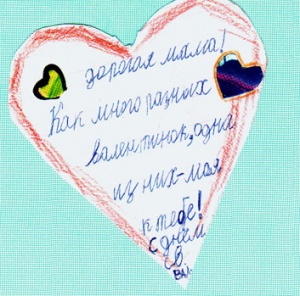 дорогая мама!
Как много разных
валентинок, одна
из них-моя
к тебе!
С
днём
СВ
Вал.